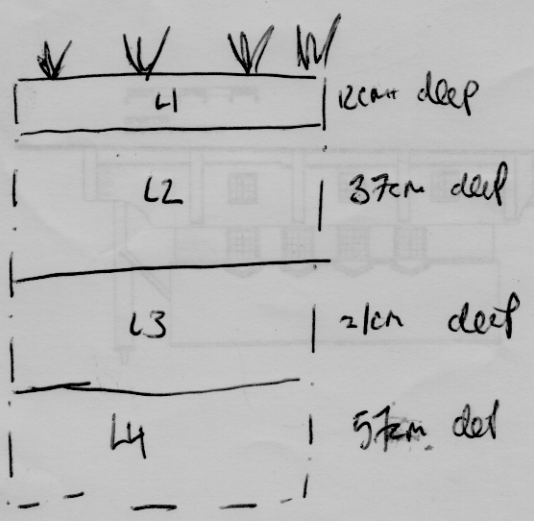 L1 12cm deep
L2 37cm deep
L3 21cm deep
L4 57cm deep